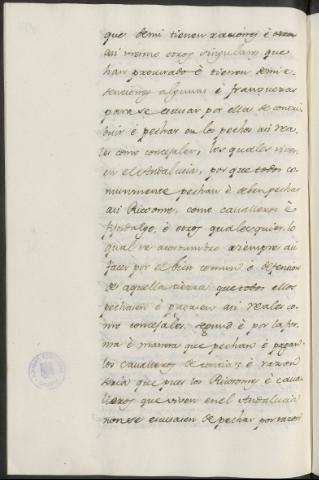 que demi tienen raciones è otro
asi mismo otros singulares que
han procurado è tienen demi e-
senciones algunas è franquezas
para se escusar por ellas de contri
buir è pechar en los pechos asi rea
les como concejales, los quales viven
en el Andalucia, por que todos co
munmente pechan è deben pechar
asi Ricosome, como cavalleros è
fijosdalgo, è otros qualesquier, lo
qual se acostumbro siempre asi
facer por el bien comun è defension
de aquella tierra que todos ellos
pechasen è pagasen asi reales co
mo concejales, segund è por la for
ma è manera que pechan è pagan
los cavalleros de contia; è razon
seria que pues los Ricosomes è cava
lleros que viven en el Andalucia
non se escusasen de pechar por razon